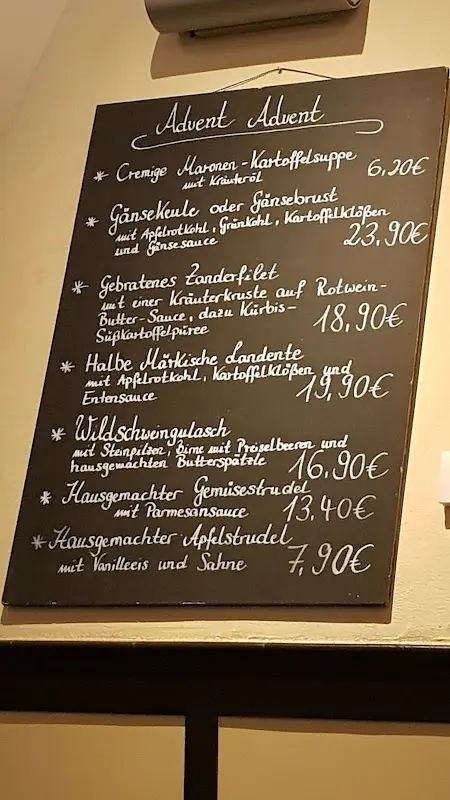 Advent Advent
* Cremige Maronen-Kartoffelsuppe
mit Kräuteröl 6,20€
* Gänsekeule oder Gänsebrust
mit Apfelrotkohl, Grünkohl, Kartoffelklößen
und Gänsesauce 23,90€
* Gebratenes Zanderfilet
mit einer Kräuterkruste auf Rotwein-
Butter-Sauce, dazu Kürbis-
Süßkartoffelpüree 18,90€
* Halbe Märkische Landente
mit Apfelrotkohl, Kartoffelklößen und
Entensauce 19,90€
* Wildschweingulasch
mit Steinpilzen, Birne mit Preiselbeeren und
hausgemachten Butterspätzle 16,90€
* Hausgemachter Gemüsestrudel
mit Parmesansauce 13,40€
* Hausgemachter Apfelstrudel
mit Vanilleeis und Sahne 7,90€